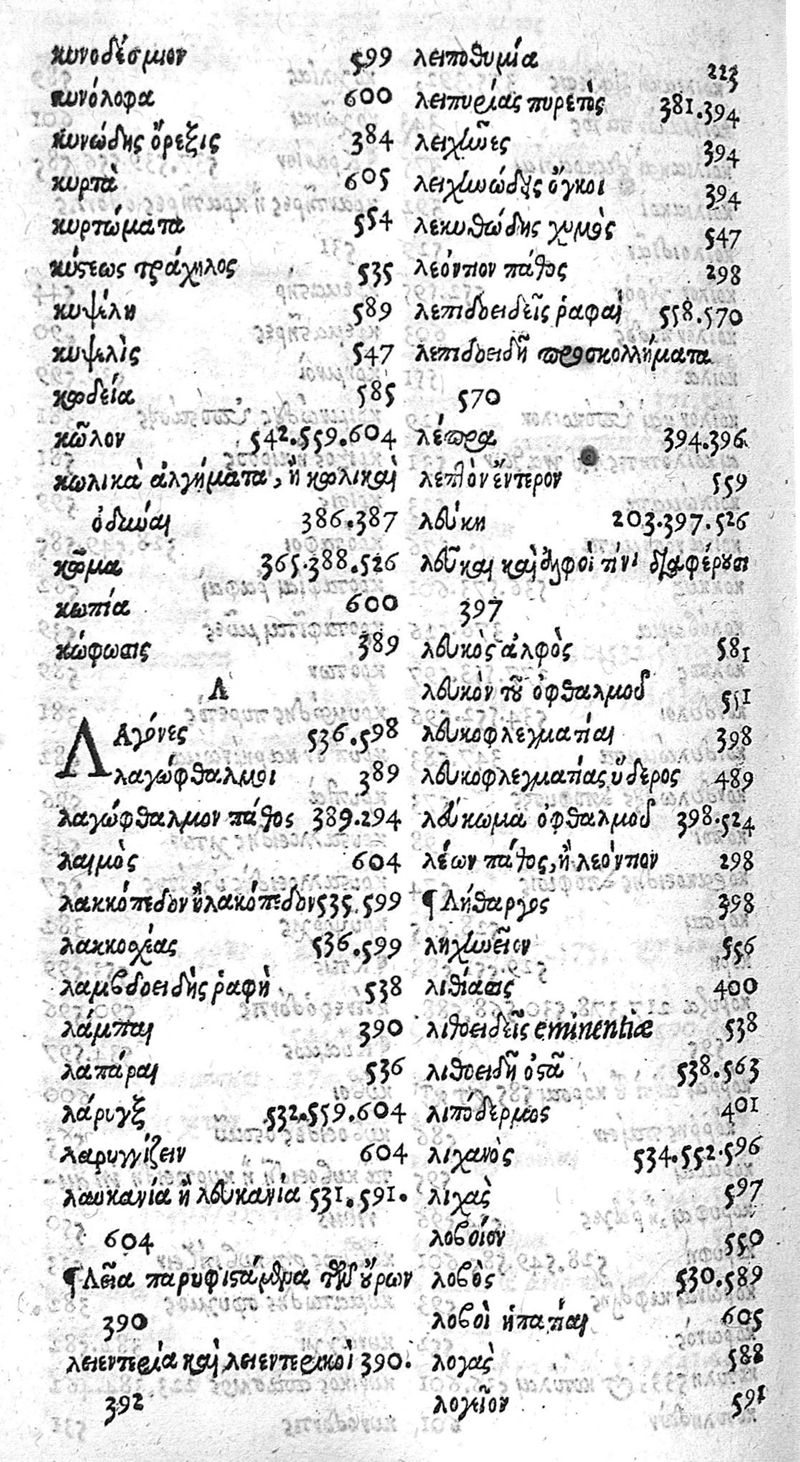 κυνοδέσμιον 599
κυνόλοφα 600
κυνώδης ὄρεξις 384
κυρτὰ 605
κυρτώματα 554
κύσεως τράχηλος 535
κυψέλη 589
κυψελὶς 547
κωδεία 585
κῶλον 542.559.604
κωλικὰ ἀλγήματα, ἢ κωλικαὶ
ὀδυύαι 386.387
κῶμα 365.388.526
κωπία 600
κώφωσις 389
Λ
ΛΑγόνες 536.598
λαγώφθαλμοι 389
λαγώφθαλμον πάθος 389.294
λαιμὸς 604
λακκόπεδον ἢ λακόπεδον 535.599
λακκοχέας 536.599
λαμβδοειδὴς ῥαφὴ 538
λάμπαι 390
λαπάραι 536
λάρυγξ 532.559.604
λαρυγγίζειν 604
λαυκανία ἢ λευκανία 531.591.
604
¶ Λεῖα παρυφιϛάμενα τῶν οὔρων
390
λειεντερία καὶ λειεντερικοὶ 390.
392
λειποθυμία 223
λειπυρίας πυρετὸς 381.394
λειχῆνες 394
λειχηνώδεις ὄγκοι 394
λεκυθώδης χυμὸς 547
λεόντιον πάθος 298
λεπιδοειδεῖς ῥαφαὶ 558.570
λεπιδοειδῆ προσκολλήματα
570
λέπρα 394.396
λεπτὸν ἔντερον 559
λεύκη 203.397.526
λεῦκαι καὶ ἀλφοὶ τίνι διαφέρουσι
397
λευκὸς ἀλφὸς 581
λευκὸν τοῦ ὀφθαλμοῦ 551
λευκοφλεγματίαι 398
λευκοφλεγματίας ὕδερος 489
λεύκωμα ὀφθαλμοῦ 398.524
λέων πάθος, ἢ λεόντιον 298
¶ Λήθαργος 398
ληχήνειον 556
λιθίασις 400
λιθοειδεῖς eminentiæ 538
λιθοειδῆ ὀϛᾶ 538.563
λιπόδερμος 401
λιχανὸς 534.552.596
λιχὰς 597
λοβοίον 550
λοβὸς 530.589
λοβοὶ ἡπατίαι 605
λογὰς 588
λογεῖον 591